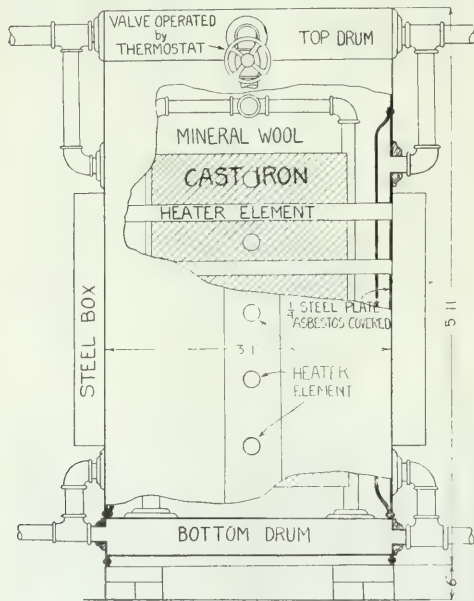 VALVE OPERATED
by
THERMOSTAT
TOP DRUM
MINERAL WOOL
CAST IRON
HEATER ELEMENT
1/4 STEEL PLATE
ASBESTOS COVERED
STEEL BOX
31
5 11
HEATER
ELEMENT
BOTTOM DRUM
6